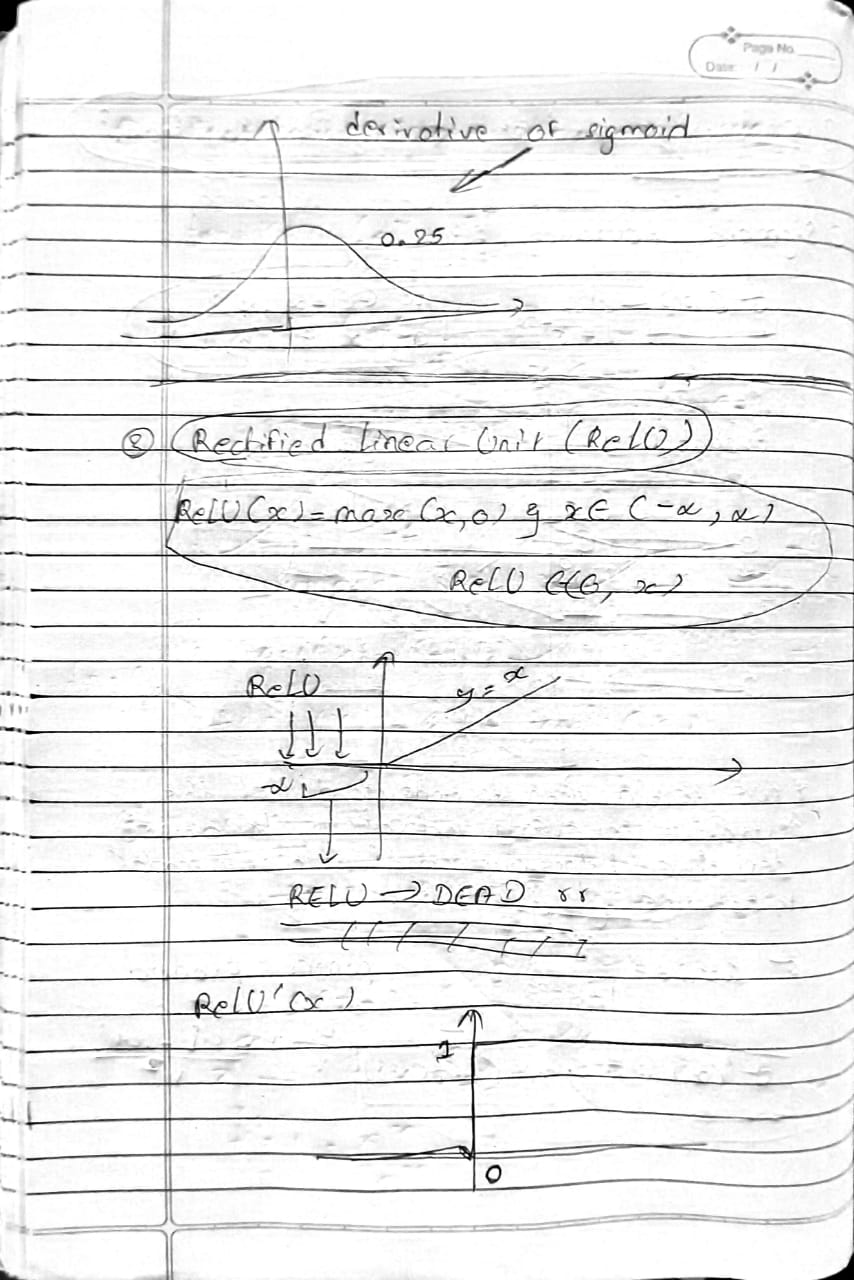 Page No.
Date: / /
derivative of sigmoid
0.25
② Rectified Linear Unit (ReLU)
ReLU(x) = max (x, 0) ; x ∈ (-∞, ∞)
ReLU
ReLU
y = x
RELU → DEAD
ReLU'(x)
1
0